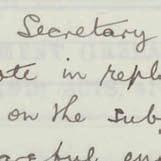 Secretary
ote in repl
on the sub